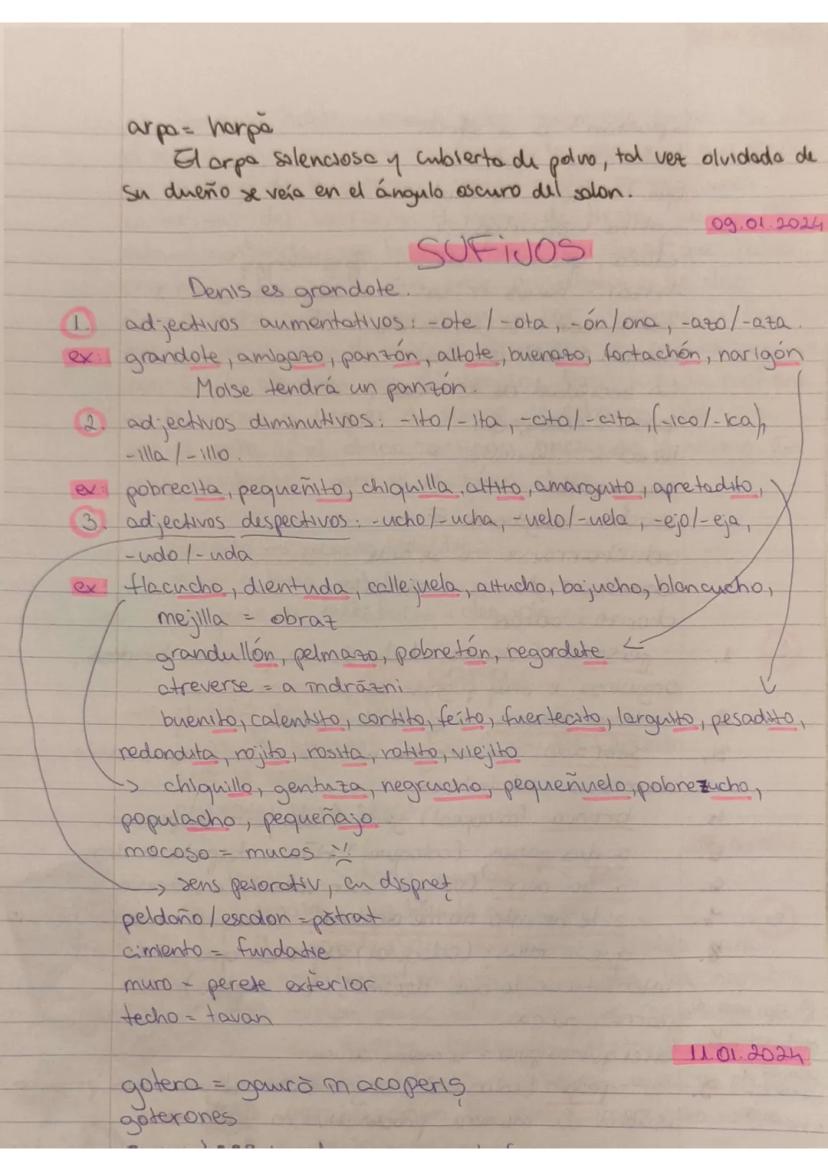 arpa = harpă
El arpa salenciosa y cubierta de polvo, tal vez olvidada de
su dueño se veía en el ángulo oscuro del salon.
09.01.2024
SUFIJOS
Denis es grandote.
1. adjectivos aumentativos: -ote / -ota, -ón/ona, -azo/-aza.
ex: grandote, amigazo, panzón, altote, buenazo, fortachón, narigón
Moise tendrá un panzón.
2. adjectivos diminutivos: -ito/-ita, -cito/-cita, (-ico/-ica),
-illa / -illo.
ex: pobrecita, pequeñito, chiquilla, altito, amarguito, apretadito,
3. adjectivos despectivos: -ucho/-ucha, -uelo/-uela, -ejo/-eja,
-udo/-uda
ex flacucho, dientuda, callejuela, altucho, bajucho, blancucho,
mejilla = obraz
grandullón, pelmazo, pobretón, regordete
atreverse = a îndrăzni
buenito, calentito, cortito, feíto, fuertecito, larguito, pesadito,
redondita, rojito, rosita, rotito, viejito
chiquillo, gentuza, negrucho, pequeñuelo, pobrezucho,
populacho, pequeñajo
mocoso = mucos
sens peiorativ, cu dispreț
peldaño / escalon = pătrat
cimiento = fundatie
muro = perete exterior
techo = tavan
11.01.2024
gotera = gaură în acoperiș
goterones